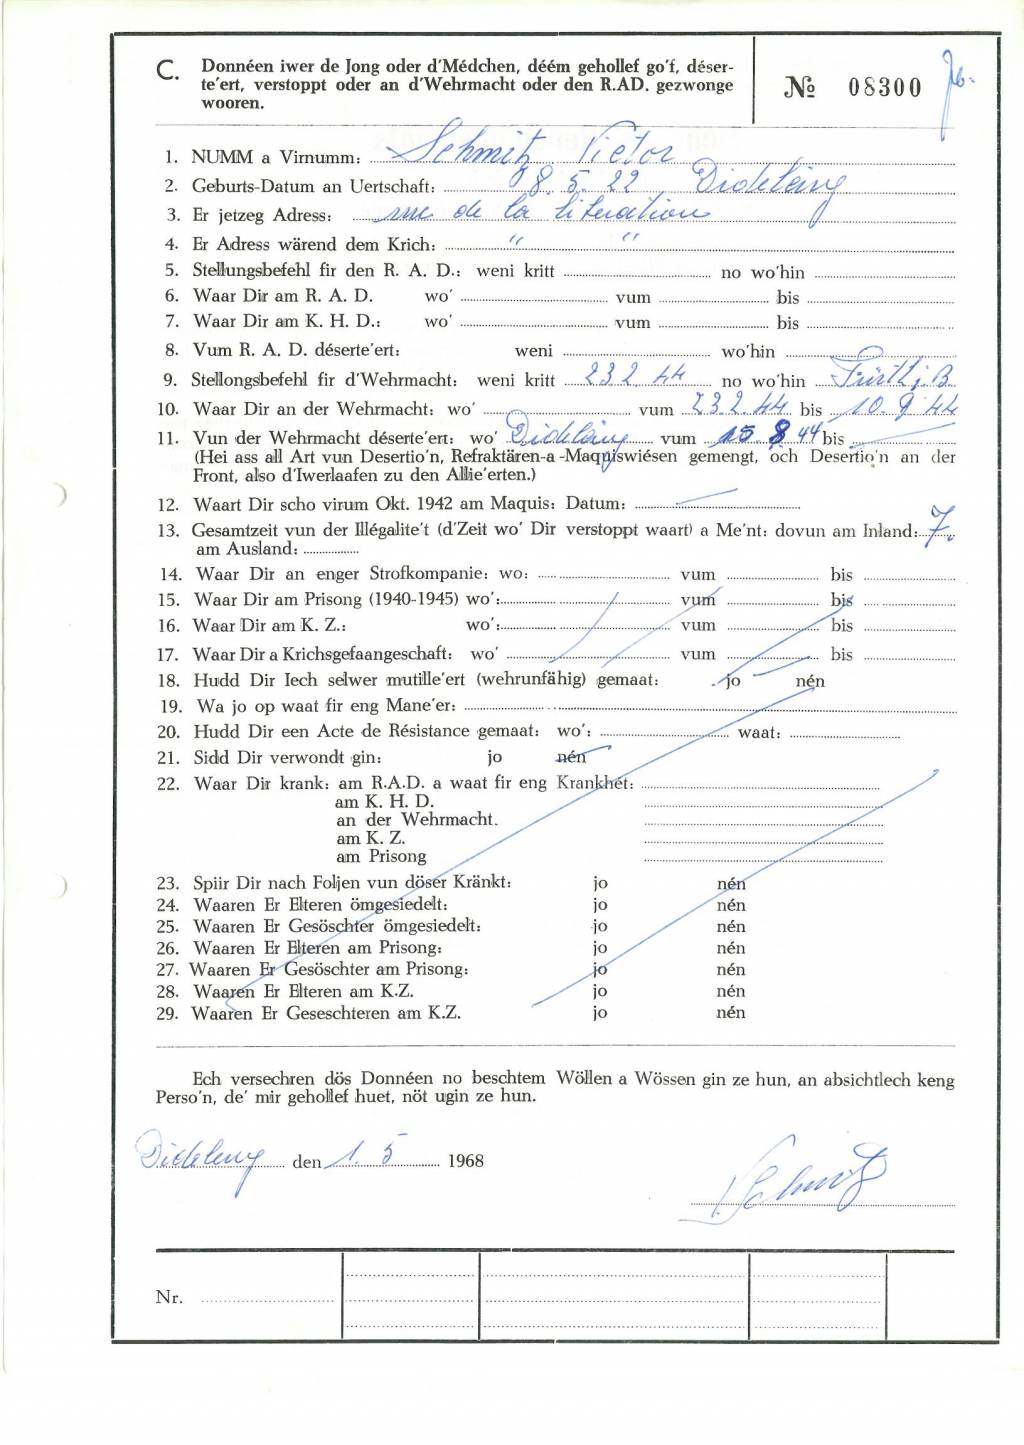 C. Donnéen iwer de Jong oder d'Médchen, déém gehollef go'f, déser-
te'ert, verstoppt oder an d'Wehrmacht oder den R.AD. gezwonge
wooren.
№ 08300
1. NUMM a Virnumm: Schmitz Victor
2. Geburts-Datum an Uertschaft: 8. 5. 22 Dideléng
3. Er jetzeg Adress: rue de la liberation
4. Er Adress wärend dem Krich: " "
5. Stellungsbefehl fir den R. A. D.: weni kritt no wo'hin
6. Waar Dir am R. A. D. wo' vum bis
7. Waar Dir am K. H. D.: wo' vum bis
8. Vum R. A. D. déserte'ert: weni wo'hin
9. Stellongsbefehl fir d'Wehrmacht: weni kritt 23 2. 44 no wo'hin Fürth i. B
10. Waar Dir an der Wehrmacht: wo' vum 23.2.44 bis 10. 9 44
11. Vun der Wehrmacht déserte'ert: wo' Dideléng vum 15 8 44 bis
(Hei ass all Art vun Desertio'n, Refraktären-a -Maquiswiésen gemengt, och Desertio'n an der
Front, also d'Iwerlaafen zu den Allie'erten.)
12. Waart Dir scho virum Okt. 1942 am Maquis: Datum:
13. Gesamtzeit vun der Illégalite't (d'Zeit wo' Dir verstoppt waart) a Me'nt: dovun am Inland: 7.
am Ausland:
14. Waar Dir an enger Strofkompanie: wo: vum bis
15. Waar Dir am Prisong (1940-1945) wo': vum bis
16. Waar Dir am K. Z.: wo': vum bis
17. Waar Dir a Krichsgefaangeschaft: wo' vum bis
18. Hudd Dir Iech selwer mutille'ert (wehrunfähig) gemaat: jo nén
19. Wa jo op waat fir eng Mane'er:
20. Hudd Dir een Acte de Résistance gemaat: wo': waat:
21. Sidd Dir verwondt gin: jo nén
22. Waar Dir krank: am R.A.D. a waat fir eng Krankhét:
am K. H. D.
an der Wehrmacht.
am K. Z.
am Prisong
23. Spiir Dir nach Foljen vun döser Kränkt: jo nén
24. Waaren Er Elteren ömgesiedelt: jo nén
25. Waaren Er Gesöschter ömgesiedelt: jo nén
26. Waaren Er Elteren am Prisong: jo nén
27. Waaren Er Gesöschter am Prisong: jo nén
28. Waaren Er Elteren am K.Z. jo nén
29. Waaren Er Geseschteren am K.Z. jo nén
Ech versechren dös Donnéen no beschtem Wöllen a Wössen gin ze hun, an absichtlech keng
Perso'n, de' mir gehollef huet, nöt ugin ze hun.
Dideleng den 1. 5 1968
Schmitz
Nr.